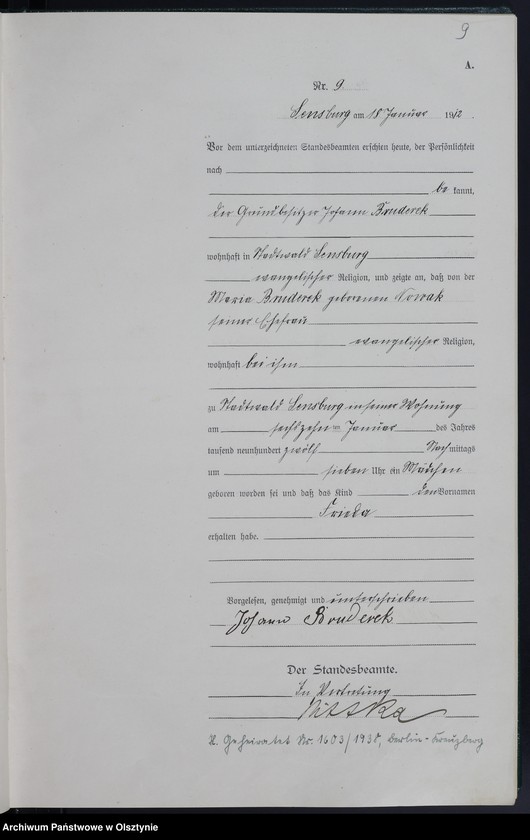 9
A.
Nr. 9
Sensburg am 18 Januar 1912
Vor dem unterzeichneten Standesbeamten erschien heute, der Persönlichkeit
nach
be kannt,
der Grundbesitzer Johann Bruderek
wohnhaft in Stadtwald Sensburg
evangelischer Religion, und zeigte an, daß von der
Maria Bruderek geborenen Nowak
seiner Ehefrau
evangelischer Religion,
wohnhaft bei ihm
zu Stadtwald Sensburg in seiner Wohnung
am sechszehn ten Januar des Jahres
tausend neunhundert zwölf Nach mittags
um sieben Uhr ein Mädchen
geboren worden sei und daß das Kind den Vornamen
Frieda
erhalten habe.
Vorgelesen, genehmigt und unterschrieben
Johann Bruderek
Der Standesbeamte.
In Vertretung
Nitska
Geheiratet Nr. 1603/1938, Berlin-Kreuzberg
Archiwum Państwowe w Olsztynie